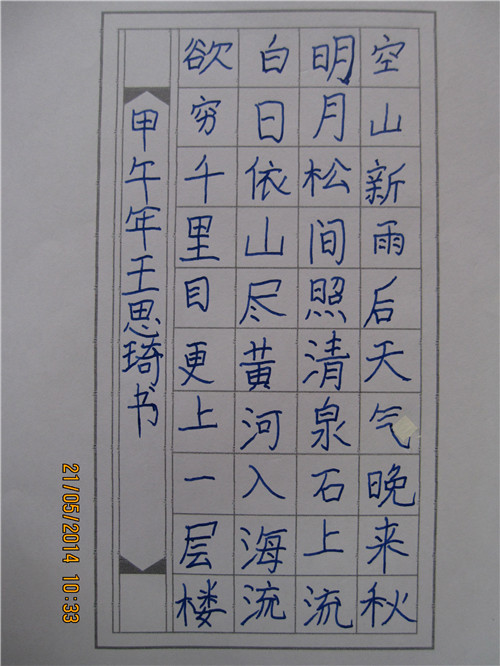 空山新雨后天气晚来秋
明月松间照清泉石上流
白日依山尽黄河入海流
欲穷千里目更上一层楼
甲午年王思琦书
21/05/2014 10:33